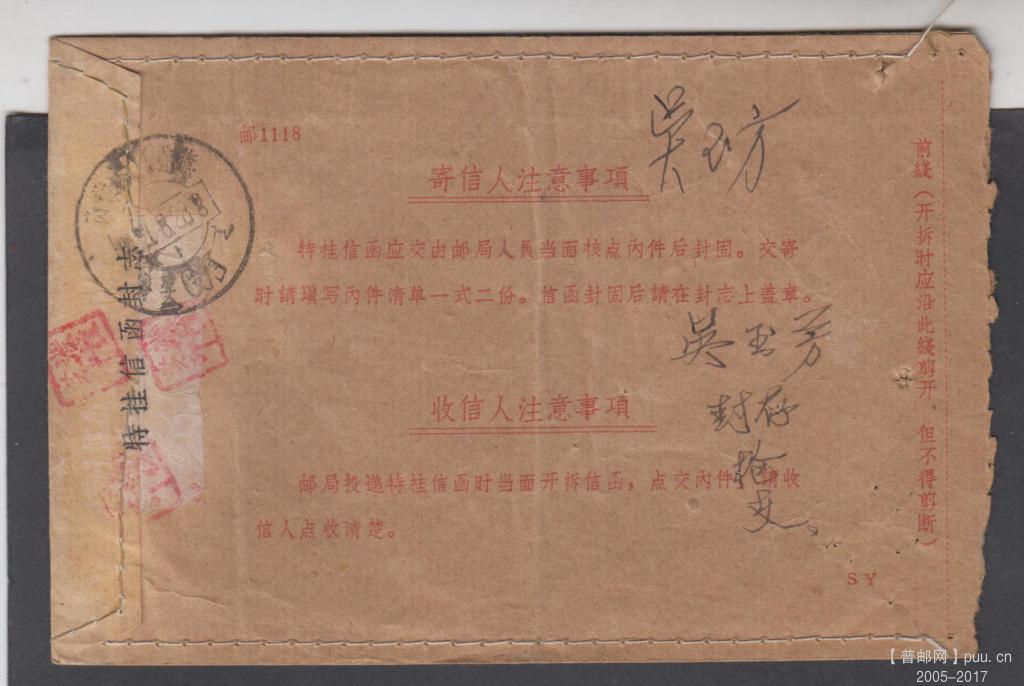 邮1118
吴玉方
寄信人注意事項
特挂信函应交由邮局人員当面核点內件后封固。交寄
时請塡写內件清单一式二份。信函封固后請在封志上盖章。
吳玉芳
封存
收信人注意事項
邮局投递特挂信函时当面开拆信函，点交內件，請收
信人点收清楚。
SY
前綫（开拆时应沿此綫剪开，但不得剪断）
特挂信函封志
【普邮网】puu.cn
2005-2017